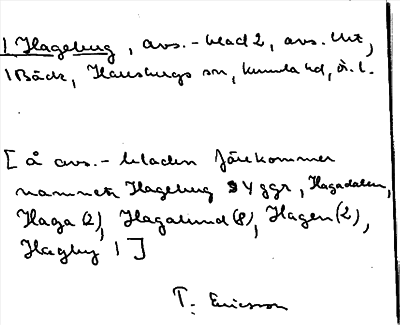 1 Hageburg, avs.-blad 2, avs. Ut,
1 Bäck, Hausburgs sn, Kumla hd, Ö.l.
[å avs.-bladen förekommer
namnet Hageburg 4 ggr, Hagadalen,
Haga (2), Hagalund (8), Hagen (2),
Hagby 1]
T. Ericsson